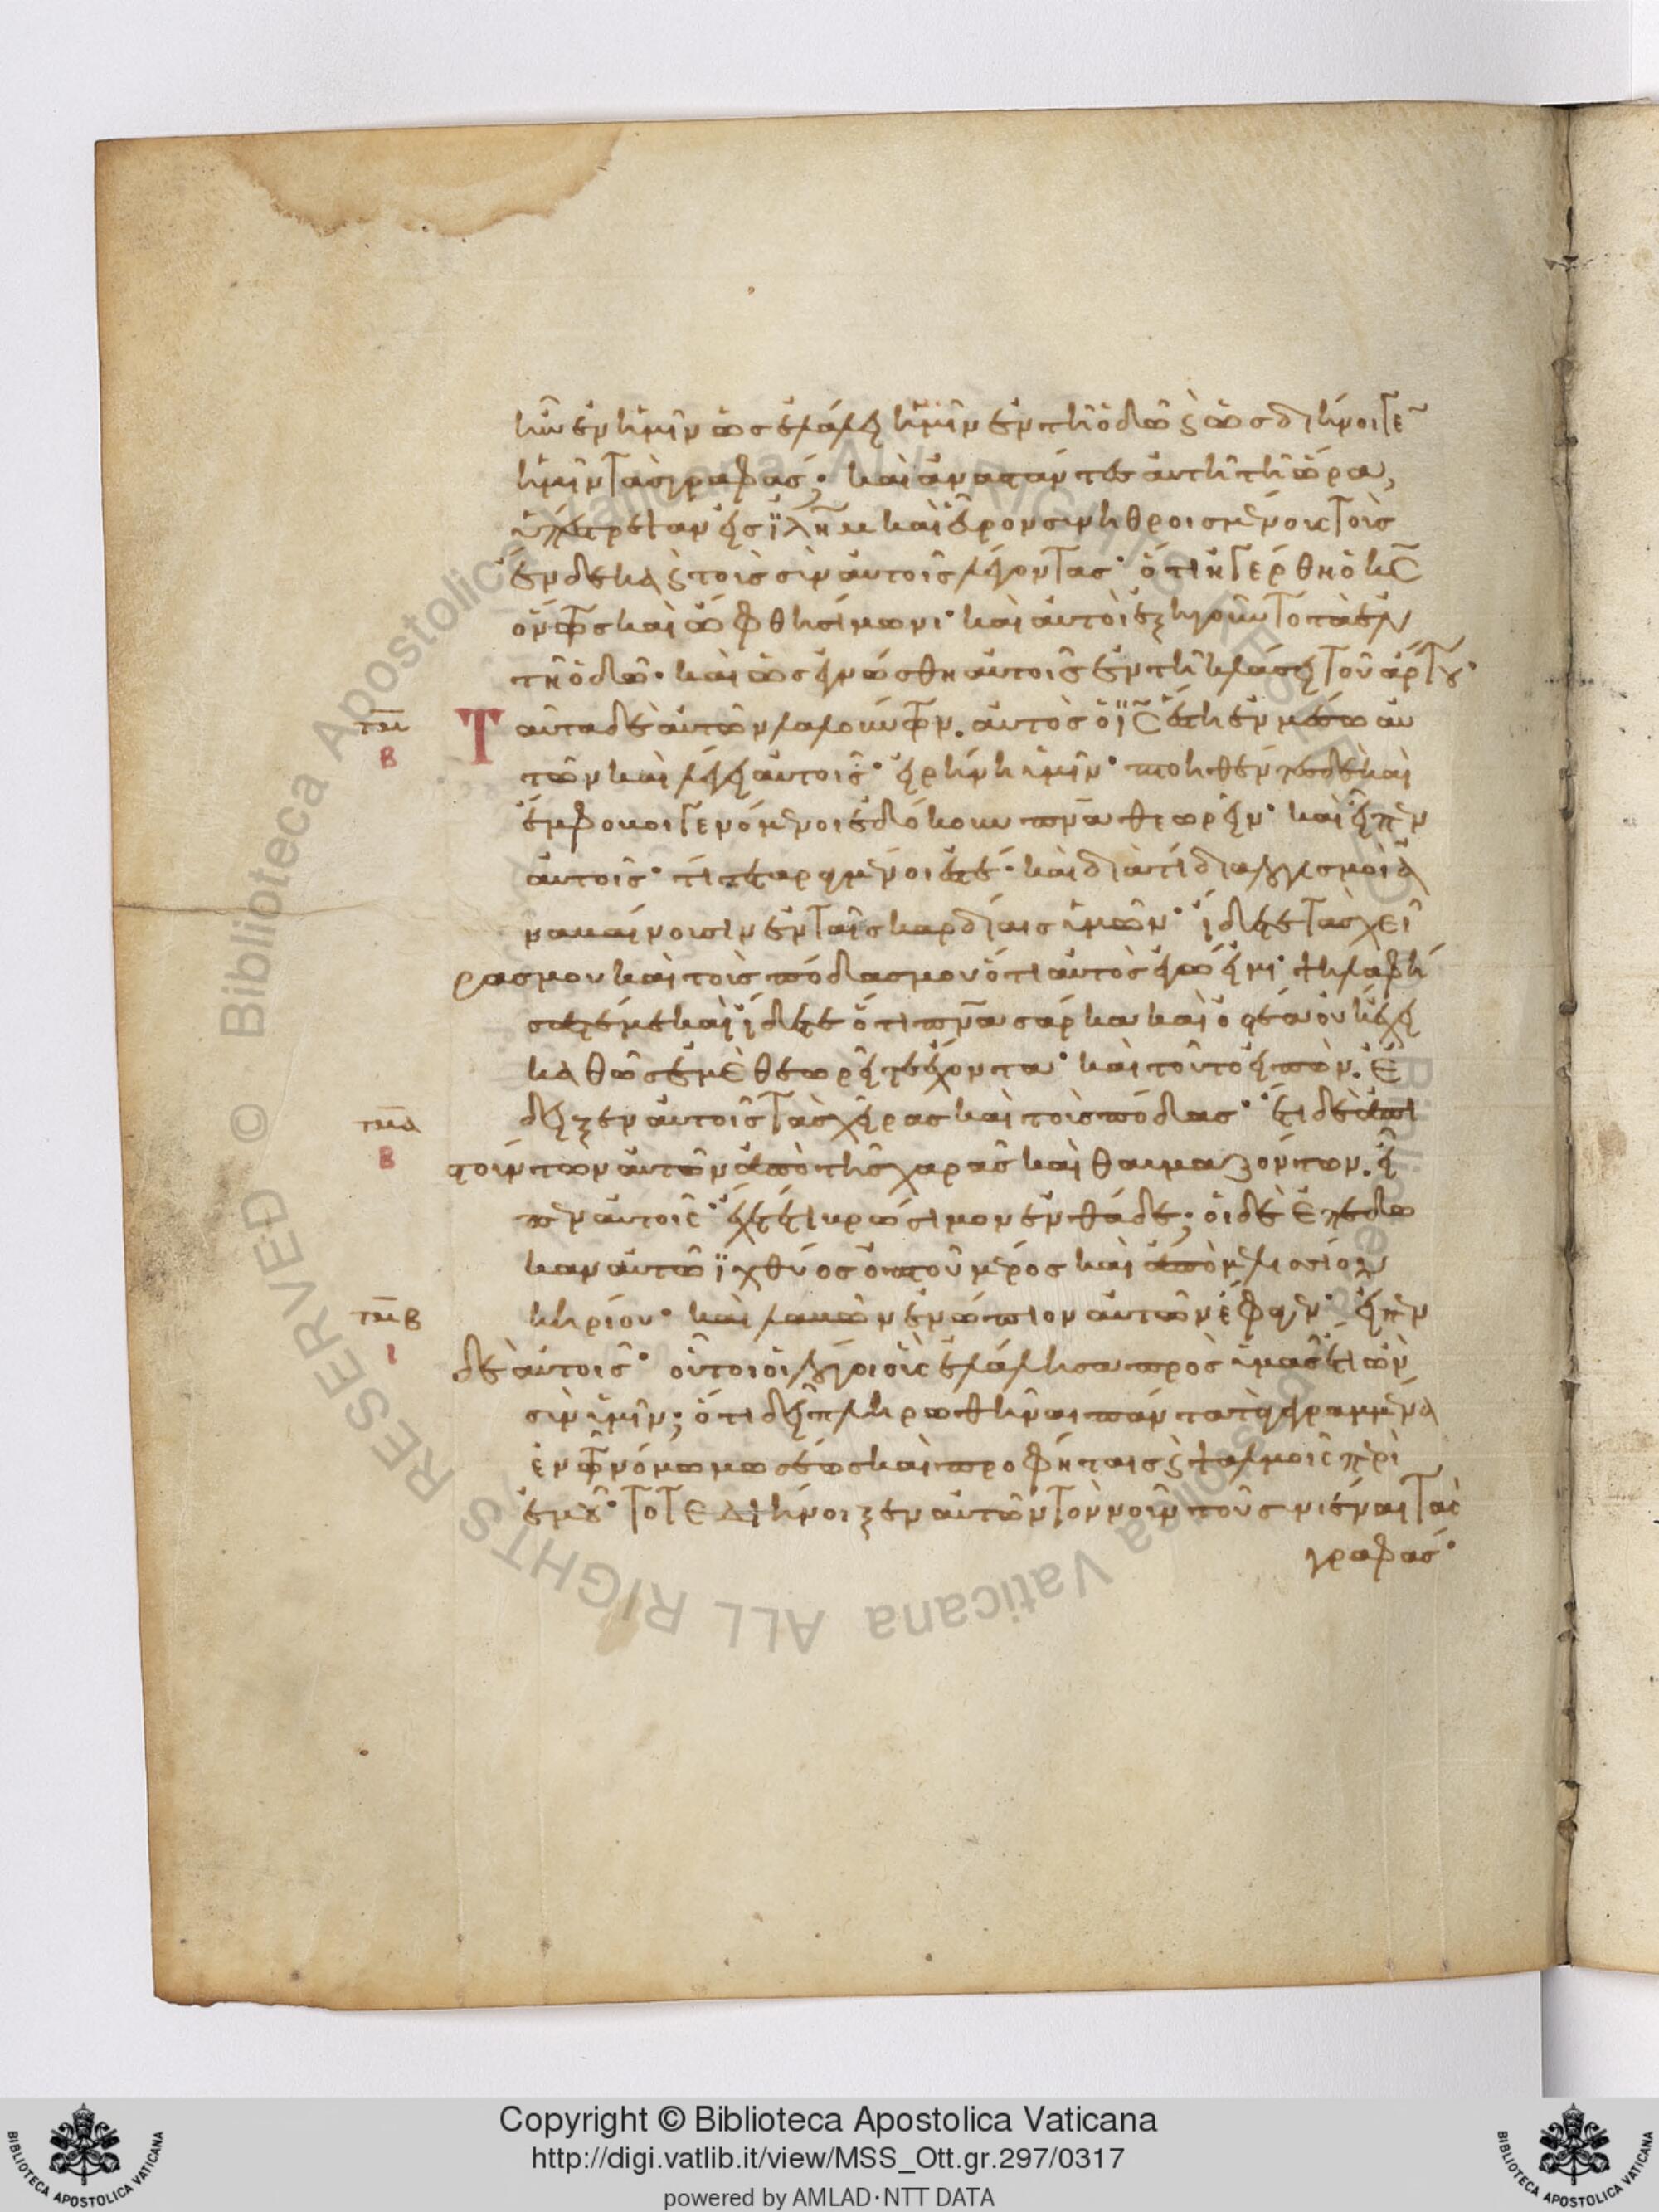 ἦν ἐν ἡμῖν ὡς ἐλάλει ἡμῖν ἐν τῇ ὁδῷ ϛ ὡς διήνοιγε
ἡμῖν τὰς γραφάς; καὶ ἀναστάντες αὐτῇ τῇ ὥρα,
ὑπέστρεψαν εἰς ϊλημ καὶ εὗρον συνηθροισμένους τοὺς
ἕνδεκα ϛ τοὺς σὺν αὐτοῖς λέγοντας· ὅτι ἠγέρθη ὁ κς
ὄντως καὶ ὤφθη σίμωνι· καὶ αὐτοὶ ἐξηγοῦντο τὰ ἐν
τῇ ὁδῷ· καὶ ὡς ἐγνώσθη αὐτοῖς ἐν τῇ κλάσει τοῦ ἄρτου·
τμ Ταῦτα δὲ αὐτῶν λαλούντων. αὐτὸς ὁ ϊς ἔστη ἐν μέσω αὐ
β τῶν καὶ λέγει αὐτοῖς· εἰρήνη ὑμῖν· πτοηθέντες δὲ καὶ
ἔμφοβοι γενόμενοι ἐδόκουν πνα θεωρεῖν· καὶ εἶπεν
αὐτοῖς· τί τεταραγμένοι ἐστέ· καὶ διατί διαλογισμοὶ ἀ
ναβαίνουσιν ἐν ταῖς καρδίαις ὑμῶν· ἴδετε τὰς χεῖ
ράς μου καὶ τοὺς πόδας μου ὅτι αὐτὸς ἐγώ εἰμι· ψηλαφή
σατέ με καὶ ἴδετε ὅτι πνα σάρκα καὶ ὀστέα οὐκ ἔχει
καθὼς ἐμὲ θεωρεῖτε ἔχοντα· καὶ τοῦτο εἰπὼν. ἔ
τμα δειξεν αὐτοῖς τὰς χεῖρας καὶ τοὺς πόδας· ἔτι δὲ ἀπι
β στούντων αὐτῶν ἀπὸ τῆς χαρᾶς καὶ θαυμαζόντων. εἶ
πεν αὐτοῖς· ἔχετέ τι βρώσιμον ἐνθάδε; οἱ δὲ ἐπέδω
καν αὐτῷ ϊχθύος ὀπτοῦ μέρος καὶ ἀπὸ μελισσίου
τμβ κηρίου· καὶ λαβὼν ἐνώπιον αὐτῶν ἔφαγεν· εἶπεν
ι δὲ αὐτοῖς· οὗτοι οἱ λόγοι οὓς ἐλάλησα πρὸς ὑμᾶς ἔτι ὢν
σὺν ὑμῖν; ὅτι δεῖ πληρωθῆναι πάντα τὰ γεγραμμένα
ἐν τῷ νόμω μωσέως καὶ προφήταις ϛ ψαλμοῖς περὶ
ἐμοῦ· τότε διήνοιξεν αὐτῶν τὸν νοῦν τοῦ συνιέναι τὰς
γραφάς·
© Biblioteca Apostolica Vaticana ALL RIGHTS RESERVED © Biblioteca Apostolica Vaticana ALL RIGHTS RESERVED
BIBLIOTECA APOSTOLICA VATICANA
Copyright © Biblioteca Apostolica Vaticana
http://digi.vatlib.it/view/MSS_Ott.gr.297/0317
powered by AMLAD·NTT DATA
BIBLIOTECA APOSTOLICA VATICANA